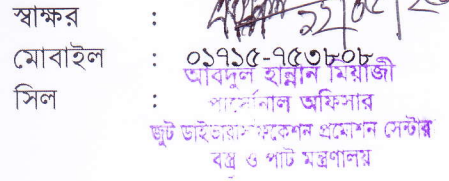 স্বাক্ষর :
মোবাইল : ০১৭১৫-৭৫৩৮০৮
সিল : আবদুল হান্নান মিয়াজী
পার্সোনাল অফিসার
জুট ডাইভারসিফিকেশন প্রমোশন সেন্টার
বস্ত্র ও পাট মন্ত্রণালয়